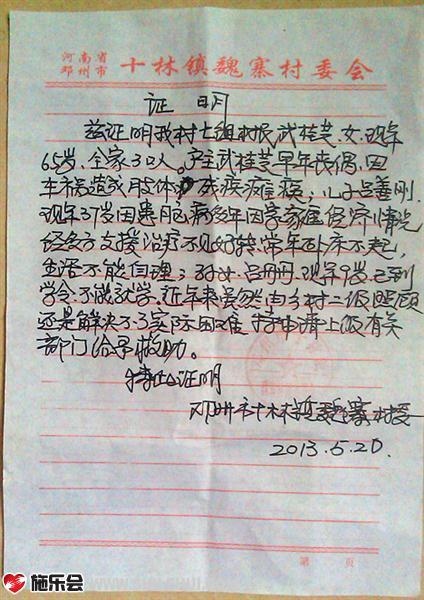 河南省
邓州市 十林镇魏寨村委会
证明
兹证明我村七组村民武桂芝,女,现年
65岁,全家3口人。户主武桂芝早年丧偶,因
车祸造成肢体残疾 ;儿子吕善刚,
现年37岁因患脑病多年因家庭经济情况
经多方支援治疗不见好转,常年卧床不起,
生活不能自理;孙女吕丹丹,现年9岁,已到
学令不能就学,近年来虽然由乡村二级照顾
还是解决不了实际困难,特申请上级有关
部门给予救助。
特此证明
邓州市十林镇魏寨村委
2013.5.20
第 页
施乐会